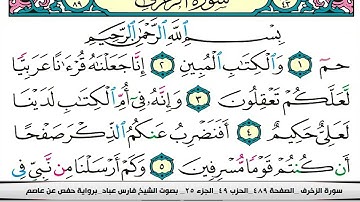 ٤٣ سورة الزخرف ٨٩
بِسْمِ ٱللَّهِ ٱلرَّحْمَٰنِ ٱلرَّحِيمِ
حمٓ ١ وَٱلْكِتَٰبِ ٱلْمُبِينِ ٢ إِنَّا جَعَلْنَٰهُ قُرْءَٰنًا عَرَبِيًّا
لَّعَلَّكُمْ تَعْقِلُونَ ٣ وَإِنَّهُۥ فِىٓ أُمِّ ٱلْكِتَٰبِ لَدَيْنَا
لَعَلِىٌّ حَكِيمٌ ٤ أَفَنَضْرِبُ عَنكُمُ ٱلذِّكْرَ صَفْحًا
أَن كُنتُمْ قَوْمًا مُّسْرِفِينَ ٥ وَكَمْ أَرْسَلْنَا مِن نَّبِىٍّ فِى
سورة الزخرف_ الصفحة ٤٨٩_الحزب ٤٩_الجزء ٢٥_ بصوت الشيخ فارس عباد_برواية حفص عن عاصم